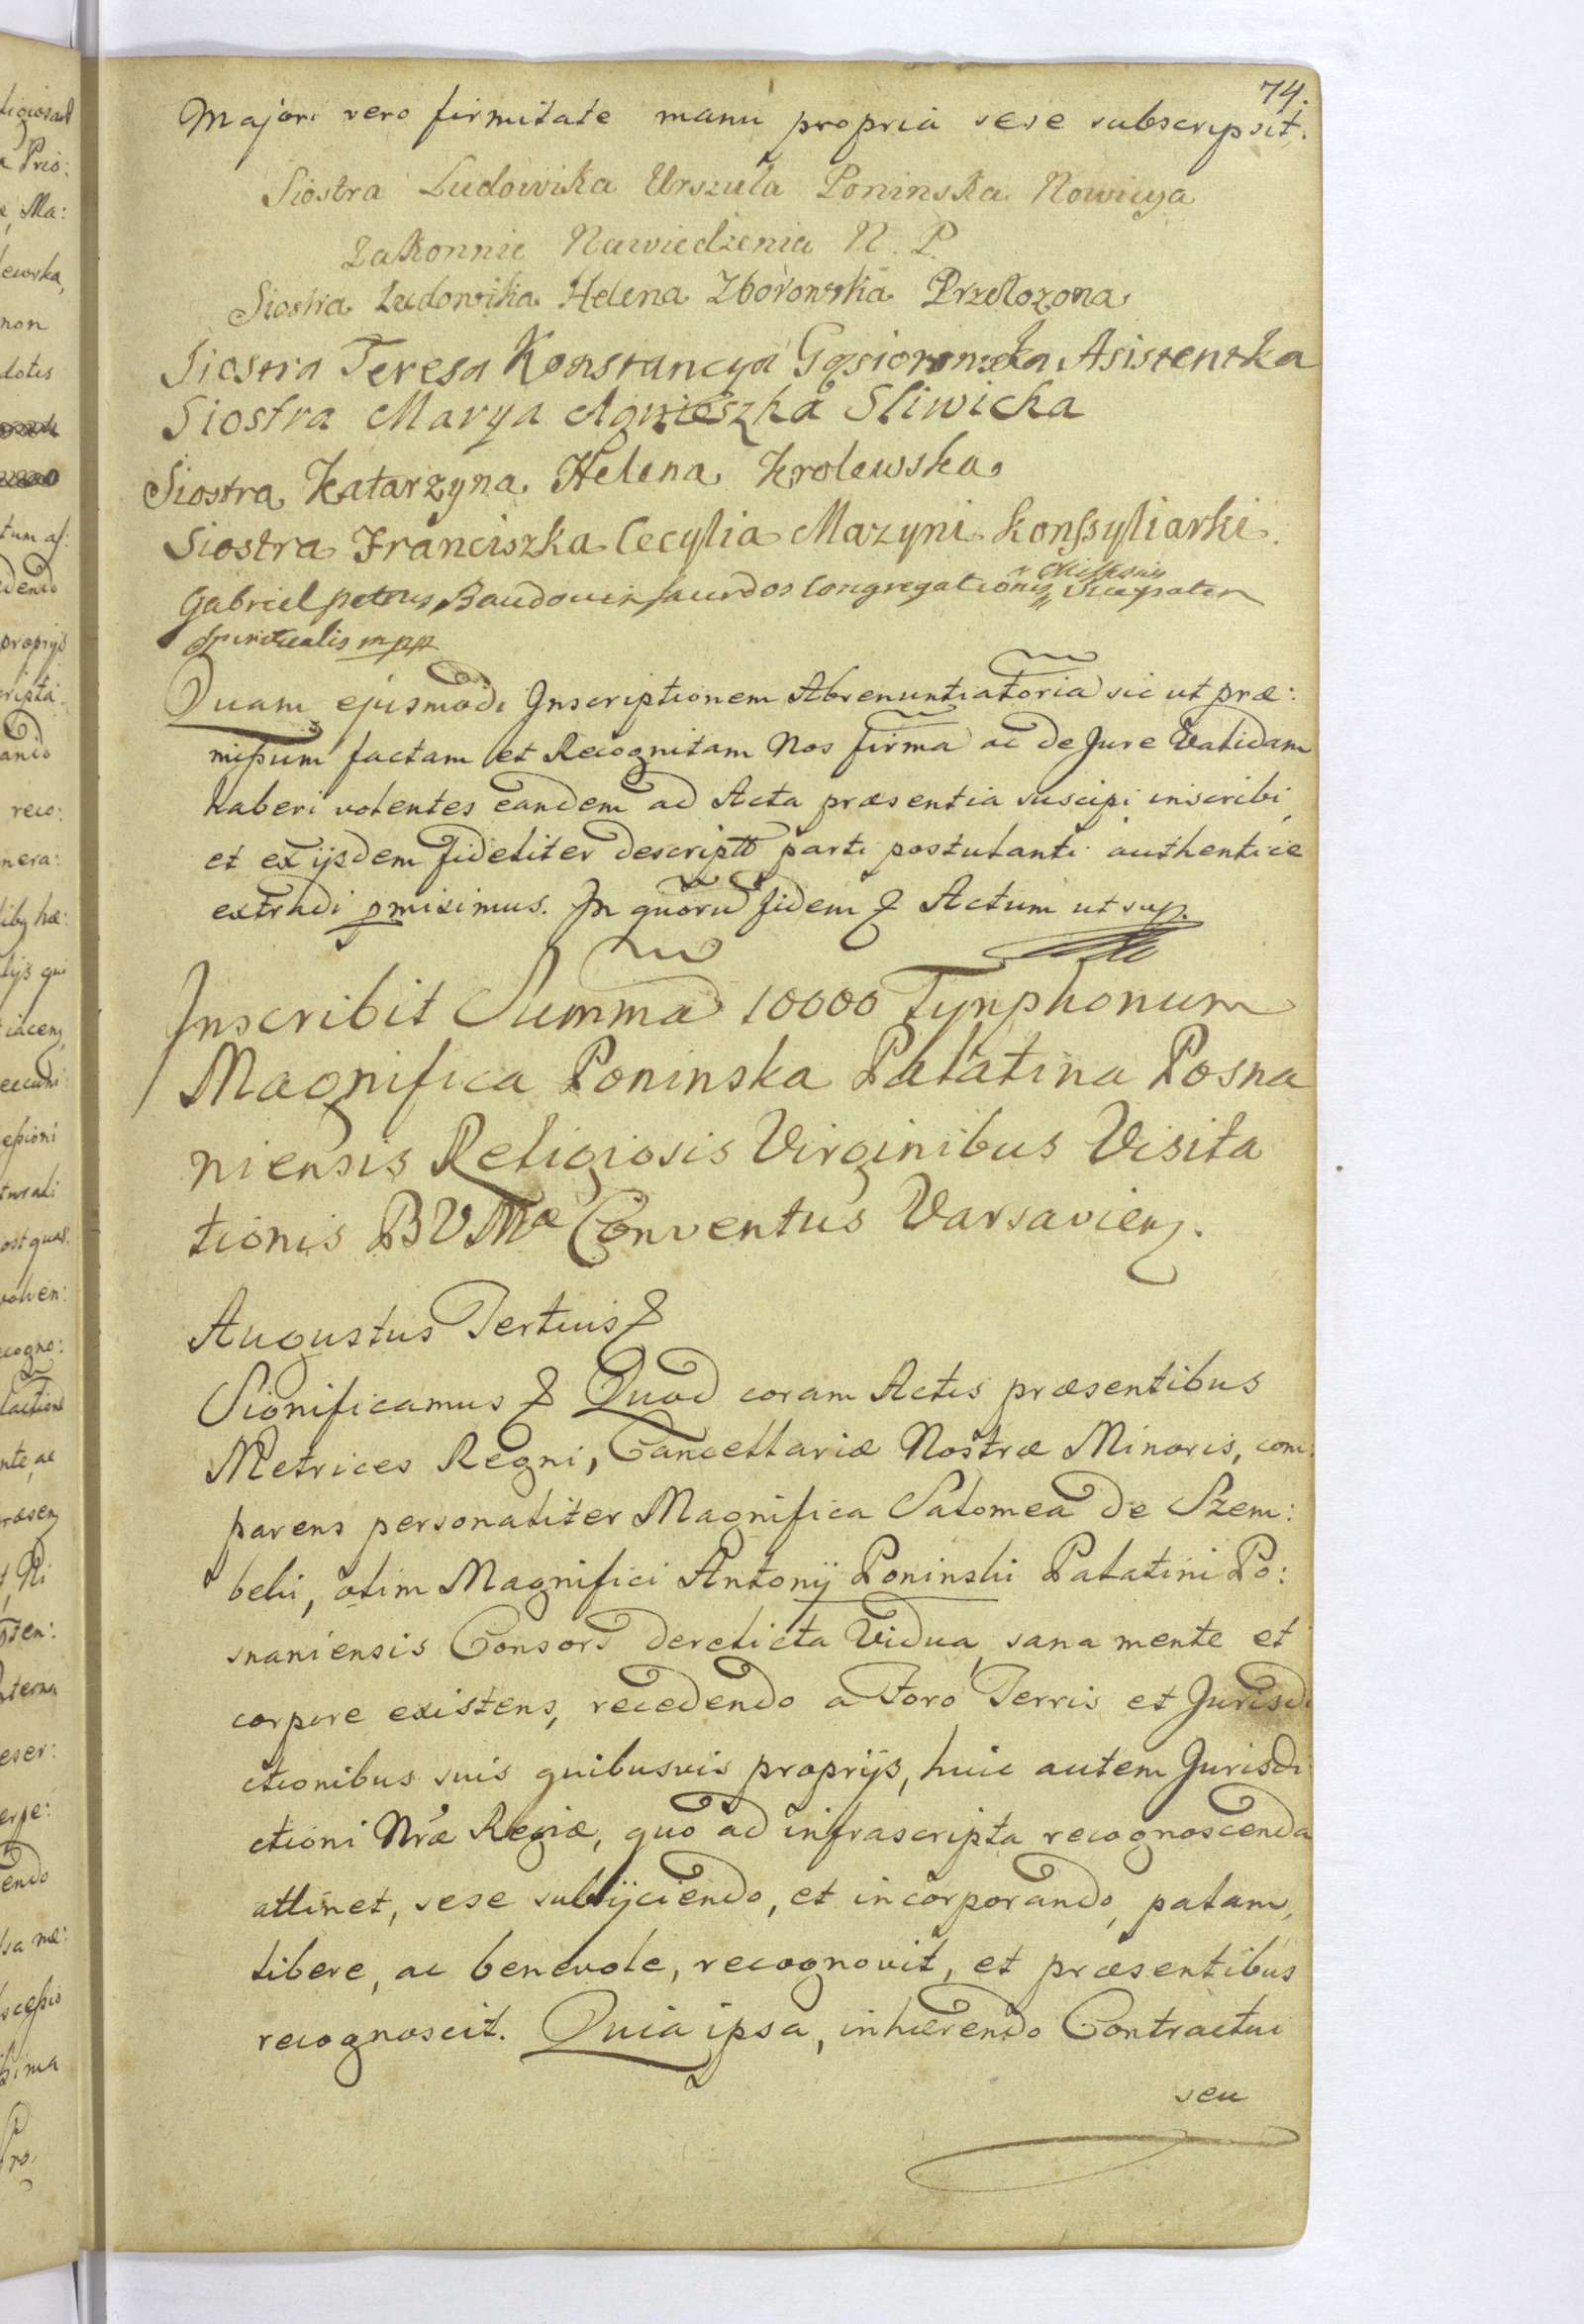 74.
Majori vero firmitate manu propria sese subscripsit.
Siostra Ludowika Urszula Poninska Nowicya
Zakonnic Nawiedzenia N. P.
Siostra Ludowika Helena Zborowska Przełozona
Siostra Teresa Konstancya Gąsiorowska Asistentka
Siostra Marya Agnieszka Sliwicka
Siostra Katarzyna Helena Krolewska
Siostra Franciszka Cecylia Mazyni Konssyliarki.
Gabriel petrus Baudouin sacerdos Congregationis Missionis Vicepater
Spiritualis mpp
Quam ejusmodi Inscriptionem Abrenuntiatoria sic ut præ:
mißum factam et Recognitam Nos firma ac de Jure Validam
haberi volentes eandem ad Acta præsentia suscipi inscribi,
et ex ijsdem fideliter descriptt parti postulanti authentice
extradi pmisimus. In quoru fidem & Actum ut sup.
Inscribit Summa 10000 Tynphonum
Magnifica Poninska Palatina Posna
niensis Religiosis Virginibus Visita
tionis BVMæ Conventus Varsavien.
Augustus Tertius &
Significamus & Quod coram Actis præsentibus
Metrices Regni, Cancellariæ Nostræ Minoris, com:
parens personaliter Magnifica Salomea de Szem:
beki, olim Magnifici Antonij Poninski Palatini Po:
snaniensis Consors derelicta Vidua, sana mente et
corpore existens, recedendo a Foro Terris et Jurisdi
ctionibus suis quibusvis proprijs, huic autem Jurisdi
ctioni Nræ Regiæ, quo ad infrascripta recognoscenda
attinet, sese subijciendo, et incorporando, palam,
libere, ac benevole, recognovit, et præsentibus
recognoscit. Quia ipsa, inhærendo Contractui
seu